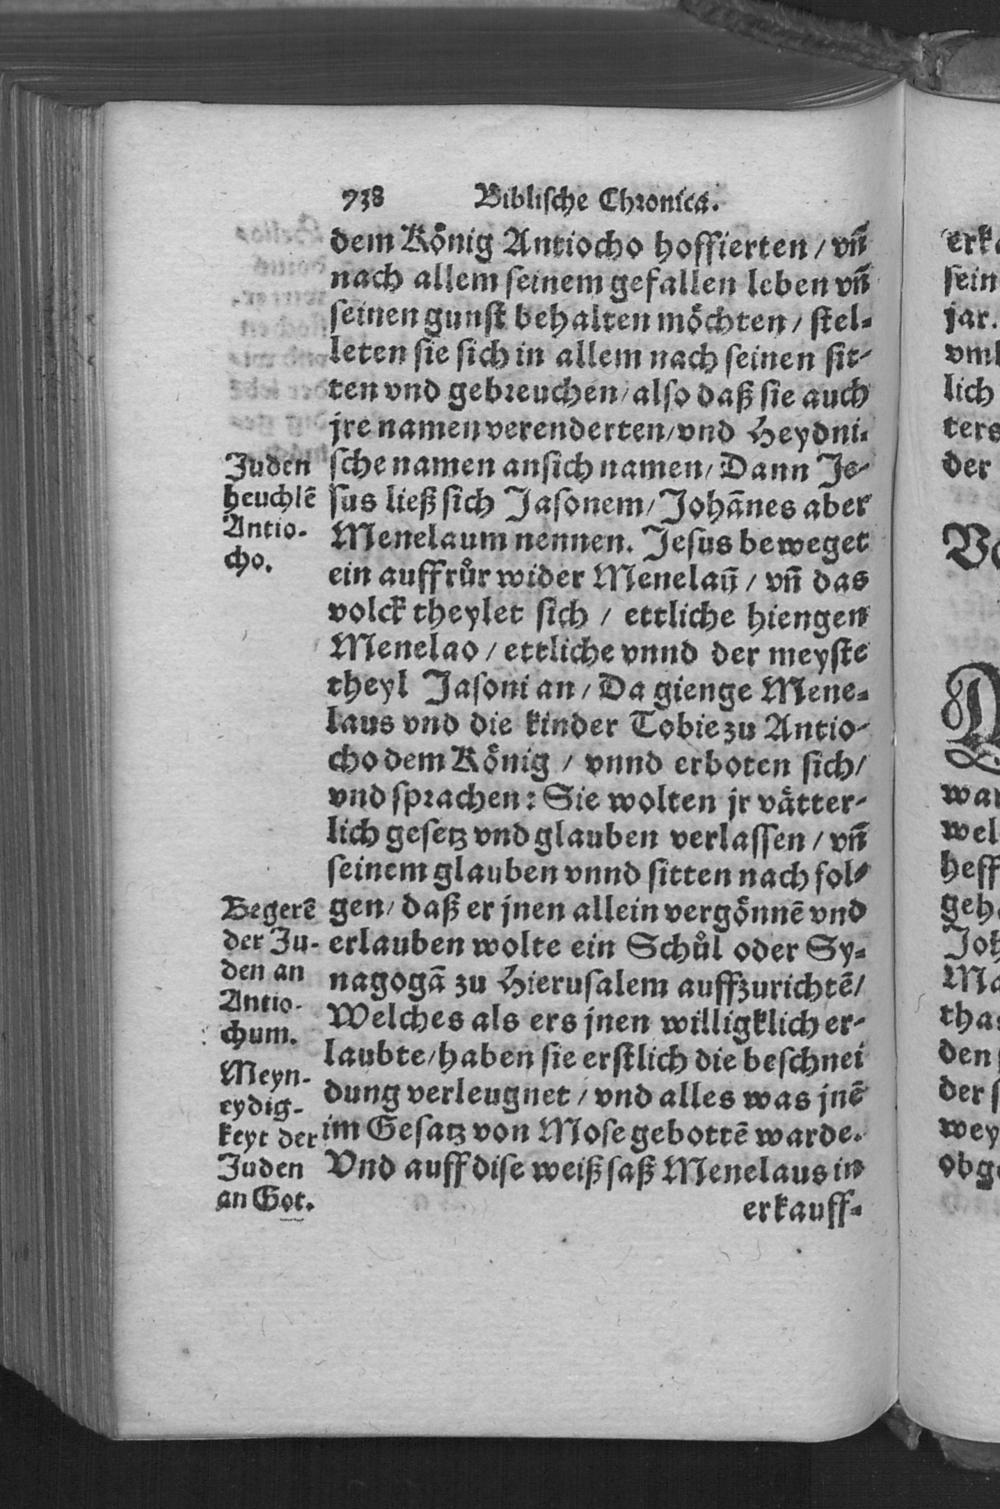 738 Biblische Chronica.
dem Koͤnig Antiocho hoffierten / vñ
nach allem seinem gefallen leben vñ
seinen gunst behalten moͤchten / stel-
leten sie sich in allem nach seinen sit-
ten vnd gebreuchen / also daß sie auch
jre namen verenderten / vnd Heydni-
sche namen an sich namen / Dann Je-
sus ließ sich Jasonem / Johãnes aber
Menelaum nennen. Jesus beweget
ein auffruͦr wider Menelaũ / vñ das
volck theylet sich / ettliche hiengen
Menelao / ettliche vnnd der meyste
theyl Jasoni an / Da gienge Mene-
laus vnd die kinder Tobie zu Antio-
cho dem Koͤnig / vnnd erboten sich /
vnd sprachen: Sie wolten jr vaͤtter-
lich gesetz vnd glauben verlassen / vñ
seinem glauben vnnd sitten nach fol-
gen / daß er jnen allein vergoͤnnẽ vnd
erlauben wolte ein Schuͦl oder Sy-
nagogã zu Hierusalem auffzurichtẽ /
Welches als ers jnen willigklich er-
laubte / haben sie erstlich die beschnei
dung verleugnet / vnd alles was jnẽ
im Gesatz von Mose gebottẽ warde.
Vnd auff dise weiß saß Menelaus in
erkauff-
Juden
heuchlẽ
Antio-
cho.
Begerẽ
der Ju-
den an
Antio-
chum.
Meyn-
eydig-
keyt der
Juden
an Got.
sein
jar.
lich
ters
der